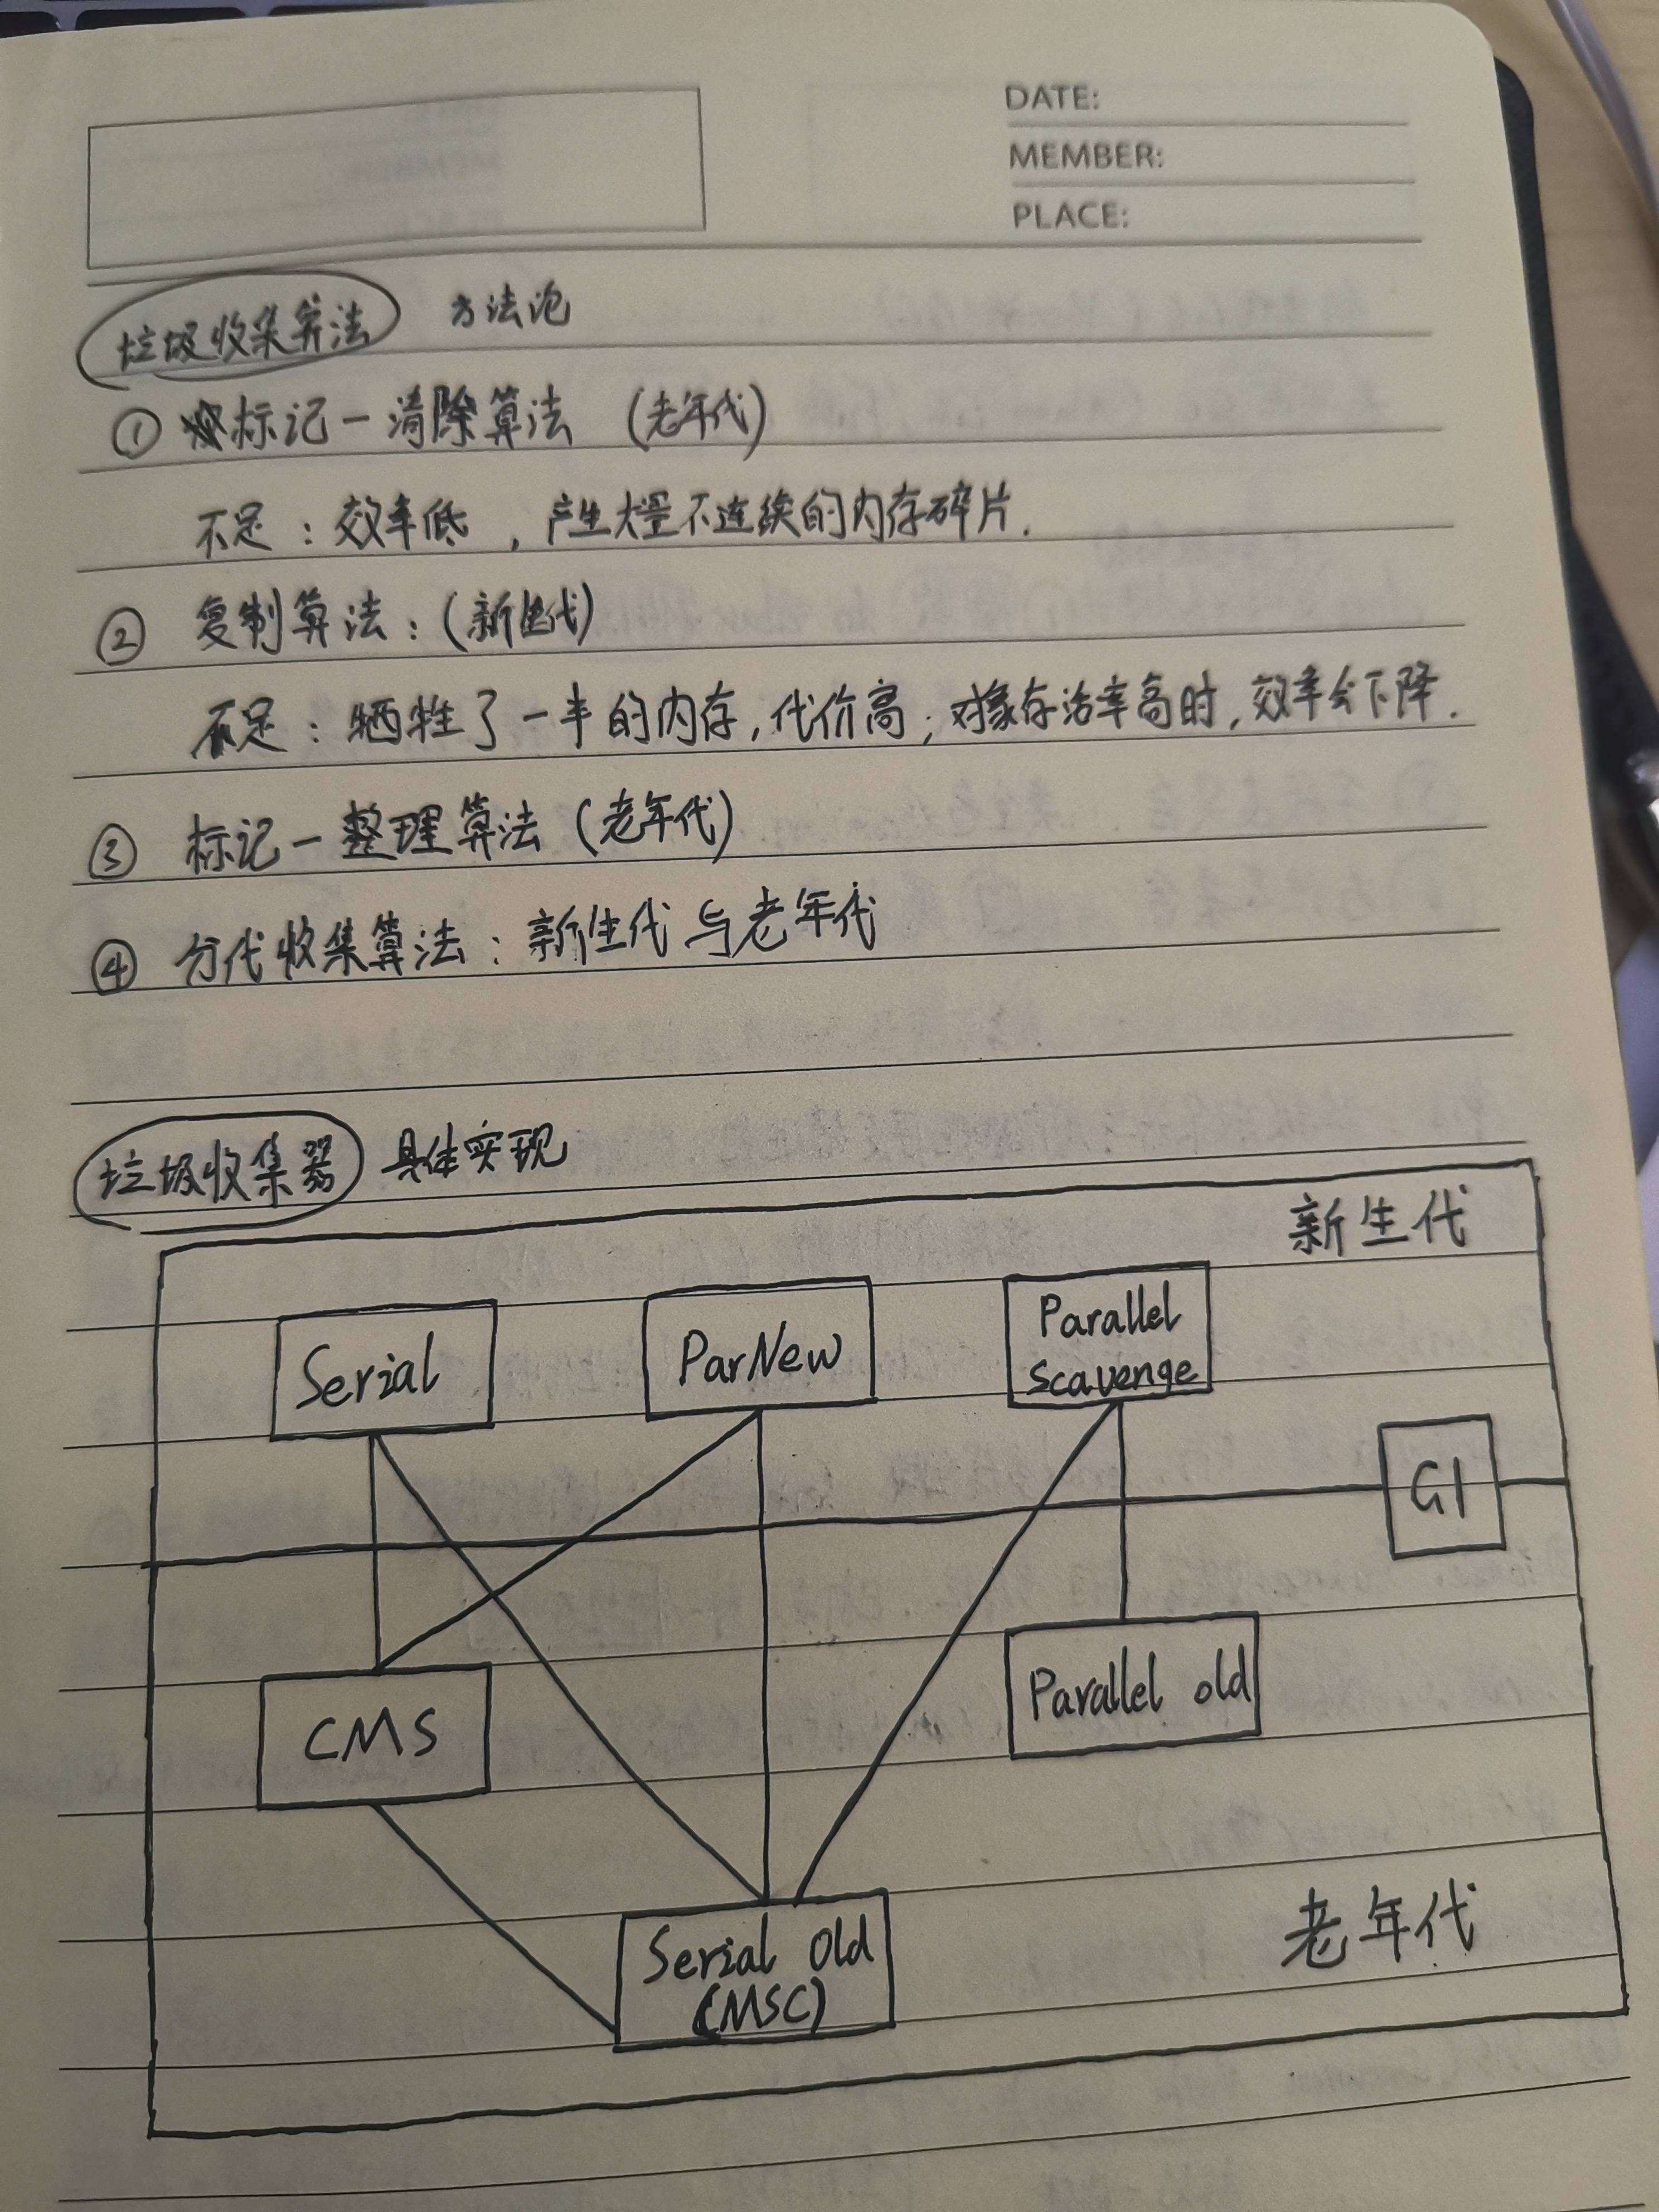 DATE:
MEMBER:
PLACE:
垃圾收集算法 方法论
① 标记-清除算法 (老年代)
不足:效率低,产生大量不连续的内存碎片.
② 复制算法:(新生代)
不足:牺牲了一半的内存,代价高;对象存活率高时,效率会下降.
③ 标记-整理算法(老年代)
④ 分代收集算法:新生代与老年代
垃圾收集器 具体实现
新生代
Serial
ParNew
Parallel
Scavenge
G1
CMS
Parallel old
Serial Old
(MSC)
老年代